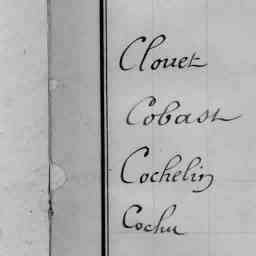 Clouet
Cobast
Cochelin
Cochu